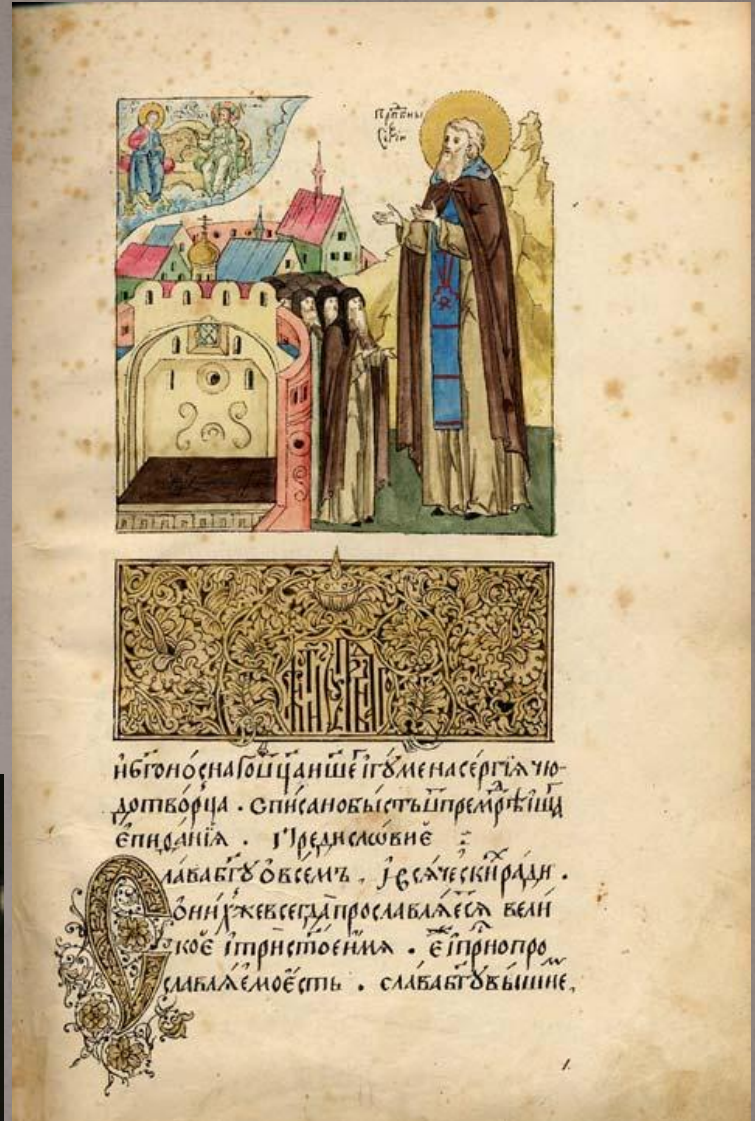 Прпⷣбны
Сеⷬгїи
Житїе Прпⷣбнаго
и҆бг҃оно́снагоѿц҃ана́шегⷪ҇їгꙋ́менасе́ргїꙗчю-
дотво́рца . Спи́саноби́стьѿпремрⷣѣ́йшⷶ
є҆пи҄ѳа́нїꙗ . Предисло́вие :
Сла́вабг҃ꙋѡ҆всемъ , їᲂу҆сѧ́ческиⷯра́ди .
ѡ҆ни́хⷤжевсегда̀прославлѧ́ется вели
кое҆ їтрист҃о́еи́мѧ . є҆́жеїпрⷭ҇нопро
славлѧ́емое҆́сть . сла́вабг҃ꙋвы́шнеⷨ,
1.